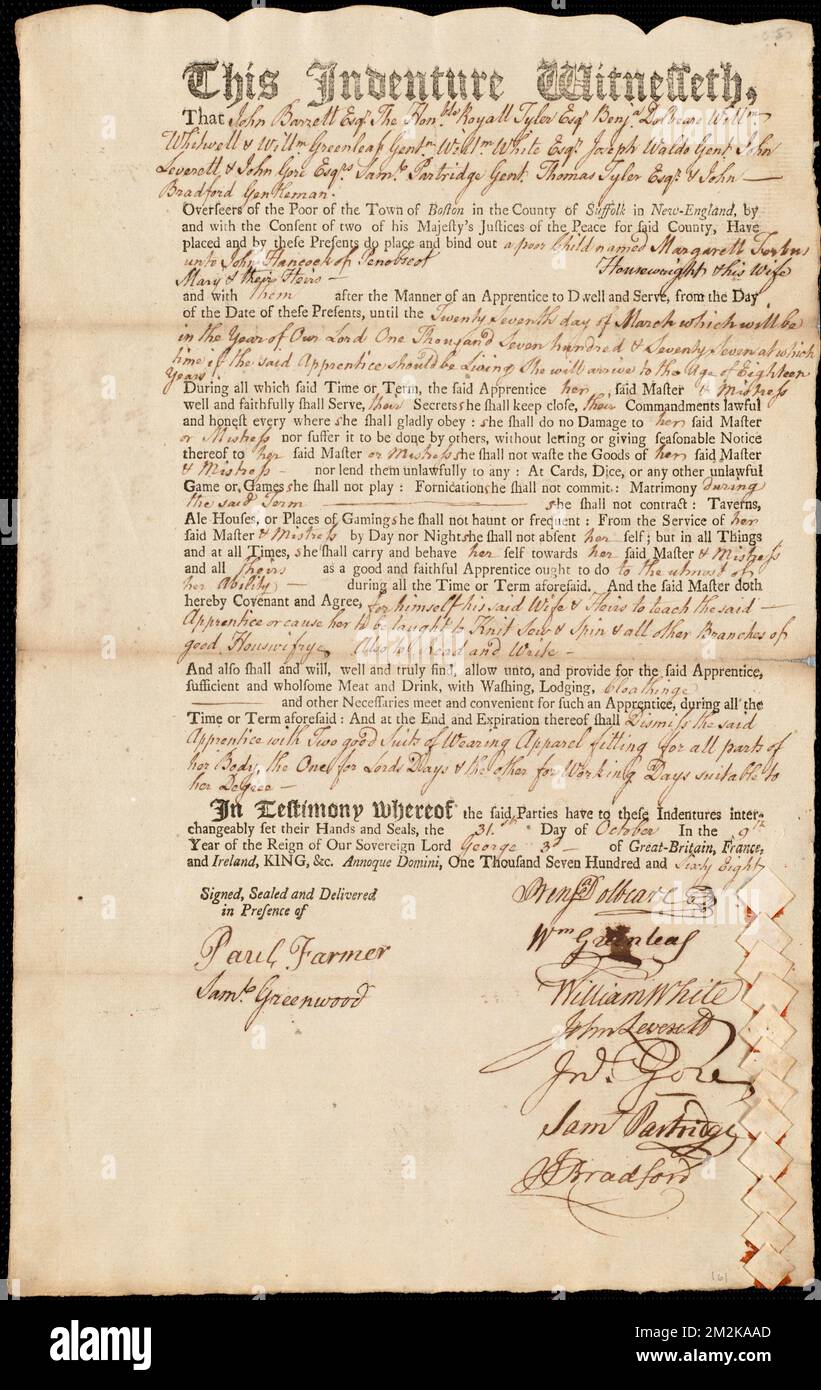 This Indenture Witnesseth,
That John Barrett Esqr. The Honble Royall Tyler Esqr Benja Dolbeare Willm
Whitwell & Willm Greenleaf Gentn Willm White Esqr. Joseph Waldo Gent John
Leverett, & John Gore Esqrs Saml. Partridge Gent. Thomas Tyler Esqr. & John
Bradford Gentleman.
Overseers of the Poor of the Town of Boston in the County of Suffolk in New-England, by
and with the Consent of two of his Majesty's Justices of the Peace for said County, Have
placed and by these Presents do place and bind out a poor Child named Margarett
unto John Hancock of Penobscot Housewright & his Wife
Mary & their Heirs —
and with them after the Manner of an Apprentice to Dwell and Serve, from the Day
of the Date of these Presents, until the Twenty Seventh day of March which will be
in the Year of Our Lord One Thousand Seven hundred & Seventy Seven at which
time if the said Apprentice should be Living She will arrive to the Age of Eighteen
Years.
During all which said Time or Term, the said Apprentice her said Master & Mistress
well and faithfully shall Serve, their Secrets she shall keep close, their Commandments lawful
and honest every where she shall gladly obey: she shall do no Damage to her said Master
or Mistress nor suffer it to be done by others, without letting or giving seasonable Notice
thereof to her said Master or Mistress she shall not waste the Goods of her said Master
& Mistress — nor lend them unlawfully to any: At Cards, Dice, or any other unlawful
Game or Games she shall not play: Fornication she shall not commit: Matrimony during
the said Term — she shall not contract: Taverns,
Ale Houses, or Places of Gaming she shall not haunt or frequent: From the Service of her
said Master & Mistress by Day nor Night she shall not absent her self; but in all Things
and at all Times, she shall carry and behave her self towards her said Master & Mistress
and all theirs as a good and faithful Apprentice ought to do to the utmost of
her Ability — during all the Time or Term aforesaid. And the said Master doth
hereby Covenant and Agree, for himself his said Wife & Heirs to teach the said —
Apprentice or cause her to be taught to Knit Sew & Spin & all other Branches of
good Houswifrye Also to Read and Write —
And also shall and will, well and truly find, allow unto, and provide for the said Apprentice,
sufficient and wholsome Meat and Drink, with Washing, Lodging, cloathinge
— and other Necessaries meet and convenient for such an Apprentice, during all the
Time or Term aforesaid: And at the End and Expiration thereof shall Dismiss the said
Apprentice with Two good Suits of Wearing Apparel fitting for all parts of
her Body, the One for Lords Days & the other for Working Days suitable to
her Degree —
In Testimony whereof the said Parties have to these Indentures inter-
changeably set their Hands and Seals, the 31.st Day of October In the 9th
Year of the Reign of Our Sovereign Lord George 3d — of Great-Britain, France,
and Ireland, KING, &c. Annoque Domini, One Thousand Seven Hundred and Sixty Eight
Signed, Sealed and Delivered
in Presence of
Paul Farmer
Saml. Greenwood
Benja Dolbeare
Wm Greenleaf
William White
John Leverett
Jno. Gore
Saml Partridge
J Bradford
161
alamy
Image ID: 2M2KAAD
www.alamy.com